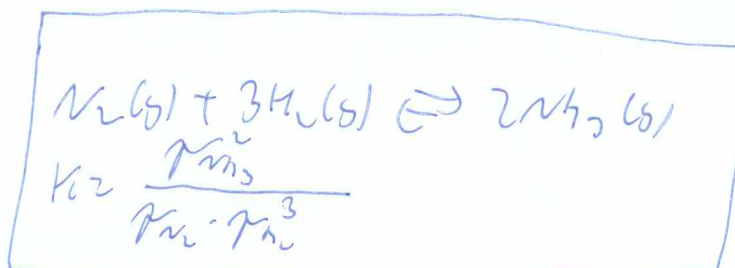 N₂(g) + 3H₂(g) ⇌ 2NH₃(g)
K = \frac{p_{NH₃}^2}{p_{N₂} · p_{H₂}^3}